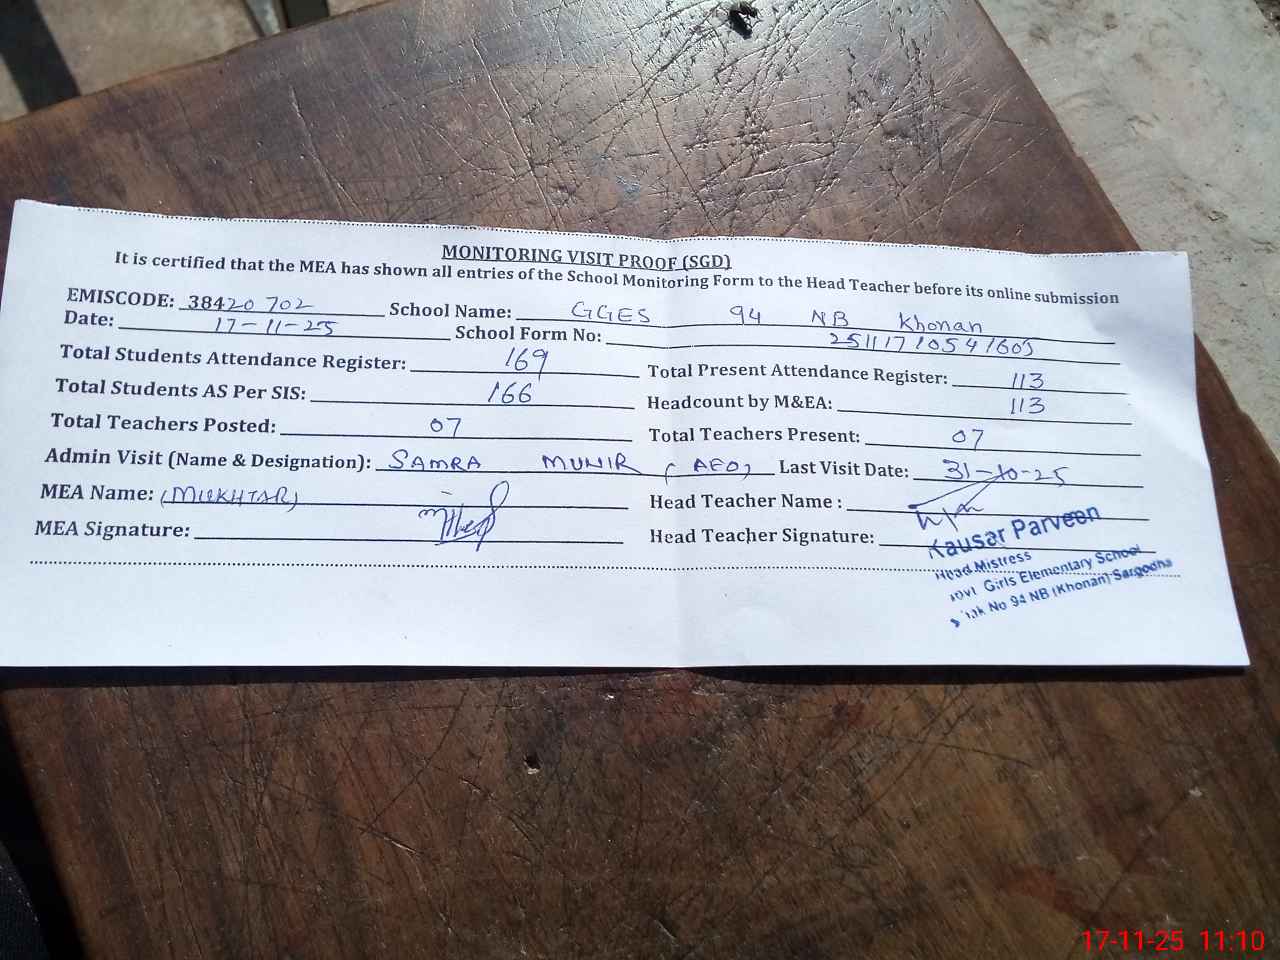 MONITORING VISIT PROOF (SGD)
It is certified that the MEA has shown all entries of the School Monitoring Form to the Head Teacher before its online submission
EMISCODE: 38420702 School Name: GGES 94 NB Khonan
Date: 17-11-25 School Form No: 25111710541603
Total Students Attendance Register: 169 Total Present Attendance Register: 113
Total Students AS Per SIS: 166 Headcount by M&EA: 113
Total Teachers Posted: 07 Total Teachers Present: 07
Admin Visit (Name & Designation): SAMRA MUNIR (AEO) Last Visit Date: 31-10-25
MEA Name: (MUKHTAR) Head Teacher Name :
MEA Signature: Head Teacher Signature:
Kausar Parveen
Head Mistress
Govt Girls Elementary School
No 94 NB (Khonan) Sargodha
17-11-25 11:10